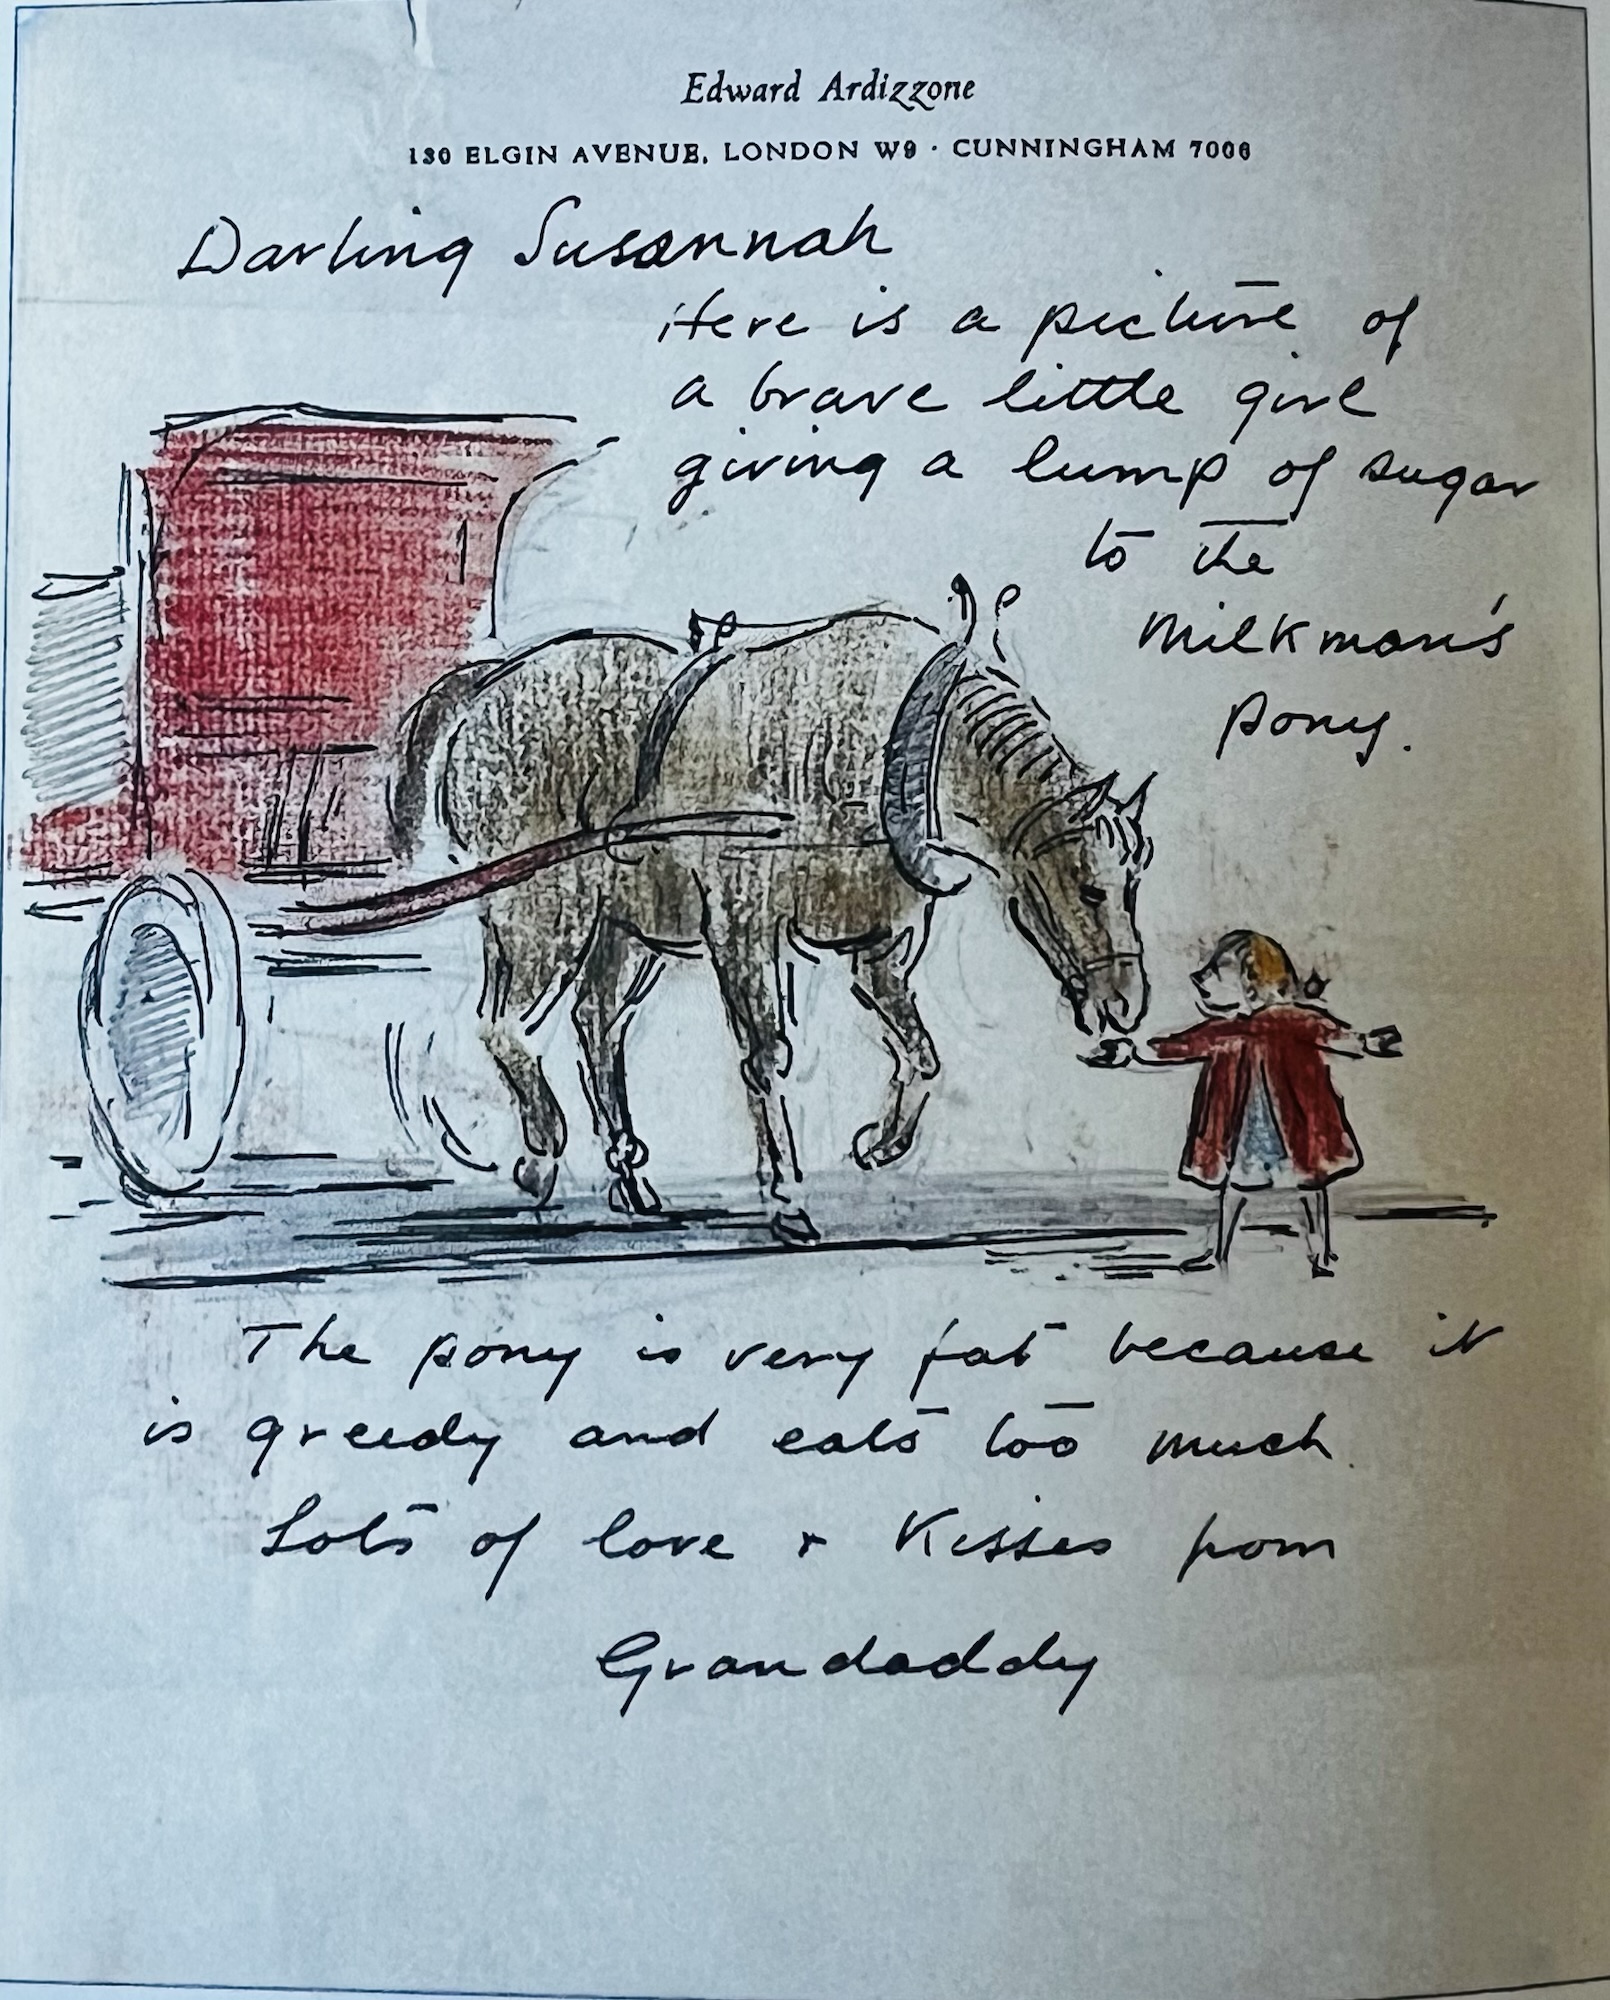 Edward Ardizzone
130 ELGIN AVENUE, LONDON W9 · CUNNINGHAM 7006
Darling Susannah
Here is a picture of
a brave little girl
giving a lump of sugar
to the
milkman's
pony.
The pony is very fat because it
is greedy and eats too much.
Lots of love + Kisses from
Grandaddy